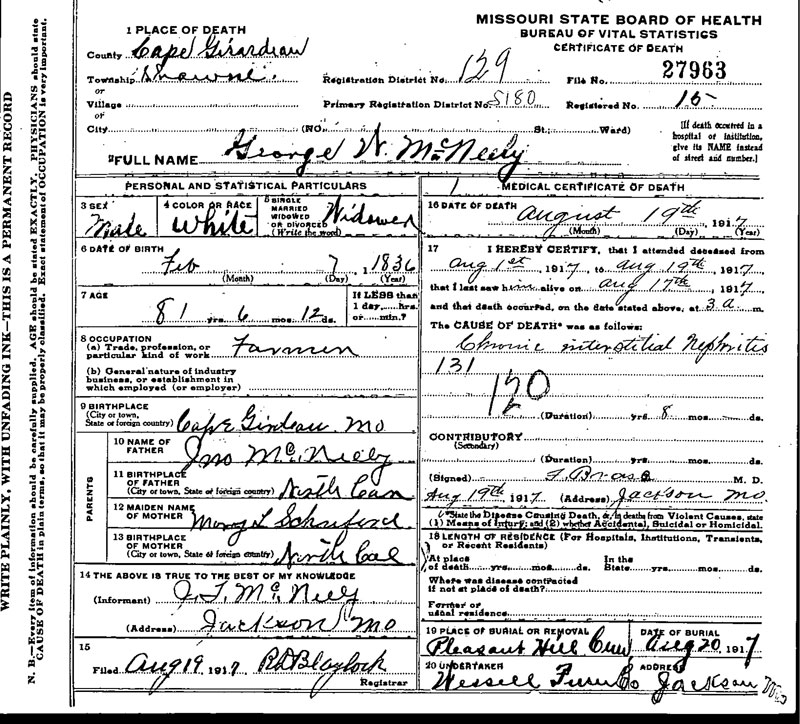 WRITE PLAINLY, WITH UNFADING INK—THIS IS A PERMANENT RECORD
N. B.—Every item of information should be carefully supplied. AGE should be stated EXACTLY. PHYSICIANS should state
CAUSE OF DEATH in plain terms, so that it may be properly classified. Exact statement of OCCUPATION is very important.
MISSOURI STATE BOARD OF HEALTH
BUREAU OF VITAL STATISTICS
CERTIFICATE OF DEATH
1 PLACE OF DEATH
County Cape Girardeau
Township Shawnee
or
Village
or
City (NO. St.; Ward)
Registration District No. 129
File No. 27963
Primary Registration District No. 5180
Registered No. 15
[If death occurred in a
hospital or institution,
give its NAME instead
of street and number.]
2 FULL NAME George W. McNeely
PERSONAL AND STATISTICAL PARTICULARS
3 SEX Male
4 COLOR OR RACE White
5 SINGLE MARRIED WIDOWED OR DIVORCED (Write the word) Widower
6 DATE OF BIRTH
Feb 7, 1836
(Month) (Day) (Year)
7 AGE
81 yrs. 6 mos. 12 ds.
If LESS than
1 day,....hrs.
or......min.?
8 OCCUPATION
(a) Trade, profession, or
particular kind of work Farmer
(b) General nature of industry
business, or establishment in
which employed (or employer)
9 BIRTHPLACE
(City or town,
State or foreign country) Cape Girdeau Mo
PARENTS
10 NAME OF
FATHER Jno McNeely
11 BIRTHPLACE
OF FATHER
(City or town, State or foreign country) North Car
12 MAIDEN NAME
OF MOTHER Mary L
13 BIRTHPLACE
OF MOTHER
(City or town, State or foreign country) North Cal
14 THE ABOVE IS TRUE TO THE BEST OF MY KNOWLEDGE
(Informant) McNeely
(Address) Jackson Mo
15
Filed Aug 19 1917 Blaylock
Registrar
MEDICAL CERTIFICATE OF DEATH
16 DATE OF DEATH August 19th, 1917
(Month) (Day) (Year)
17 I HEREBY CERTIFY, that I attended deceased from
Aug 1st, 1917, to Aug 19th, 1917
that I last saw him alive on Aug 17th, 1917
and that death occurred, on the date stated above, at 3 a m.
The CAUSE OF DEATH* was as follows:
Chronic interstitial Nephritis
131
120
(Duration) yrs. 8 mos. ds.
CONTRIBUTORY
(Secondary)
(Duration) yrs. mos. ds.
(Signed) M. D.
Aug 19th, 1917 (Address) Jackson Mo.
*State the Disease Causing Death, or, in deaths from Violent Causes, state
(1) Means of Injury; and (2) whether Accidental, Suicidal or Homicidal.
18 LENGTH OF RESIDENCE (For Hospitals, Institutions, Transients,
or Recent Residents)
At place
of death yrs. mos. ds.
In the
State yrs. mos. ds.
Where was disease contracted
if not at place of death?
Former or
usual residence
19 PLACE OF BURIAL OR REMOVAL
Pleasant Hill Cem
DATE OF BURIAL
Aug 20, 1917
20 UNDERTAKER
Wessell Furn Co
ADDRESS
Jackson